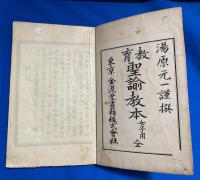 湯原元一謹撰
教育聖諭教本 女子用 全
東京 金港堂書籍株式會社